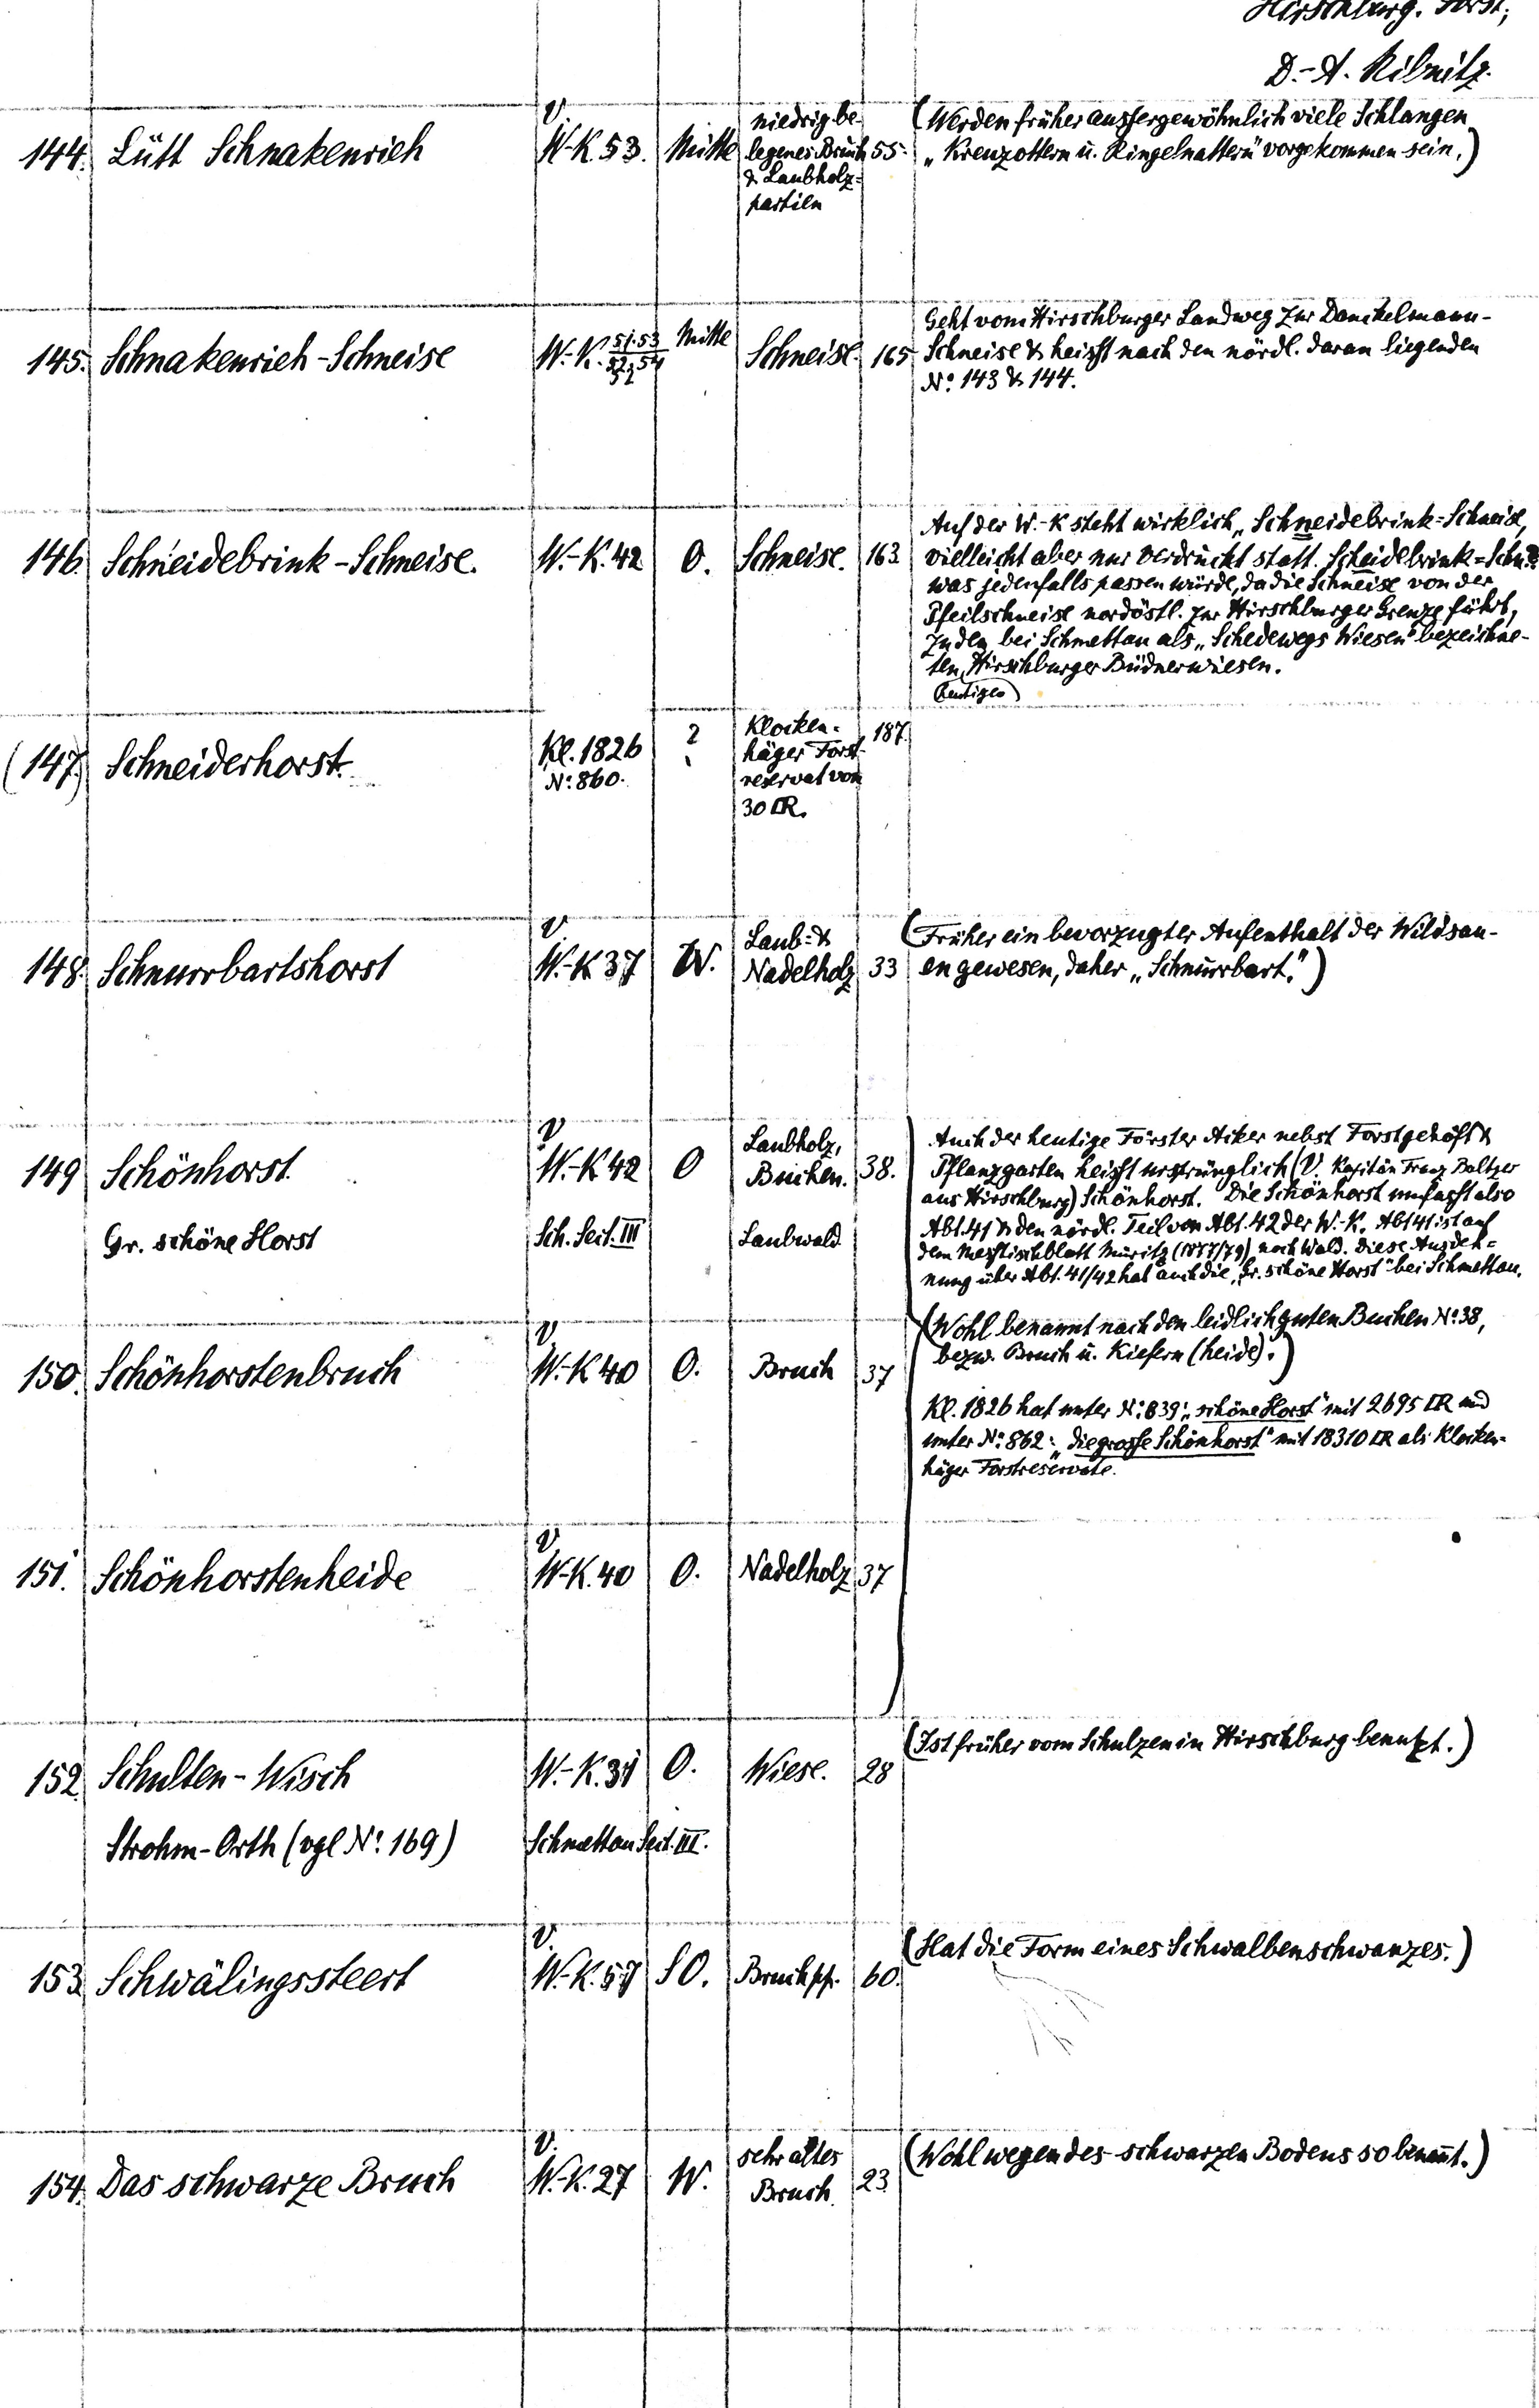 Hirschburg. Forst;
D.-A. Ribnitz.
144. Lütt Schnakenrieh
V.
W.-K. 53. Mitte
niedrig be-
legenes Bruch
& Laubholz-
partien
55.
(Werden früher aussergewöhnlich viele Schlangen
„Kreuzottern u. Ringelnattern“ vorgekommen sein.)
145. Schnakenrieh-Schneise
W.-K. 51.53 Mitte
52.54
Schneise. 165
Geht vom Hirschburger Landweg zur Danckelmann-
Schneise & heisst nach den nördl. daran liegenden
No. 143 & 144.
146. Schneidebrink-Schneise.
W.-K. 42 O. Schneise. 163
Auf der W.-K steht wirklich „Schneidebrink=Schneise,
vielleicht aber nur verdruckt statt Scheidebrink=Schn.
was jedenfalls passen würde, da die Schneise von der
Pfeilschneise nordöstl. zur Hirschburger Grenze führt,
zu den, bei Schmettau als „Schedewegs Wiesen“ bezeichne-
ten, Hirschburger Büdnerwiesen.
heutigen
(147.) Schneiderhorst.
Kl. 1826
No. 860.
?
Klocken-
häger Forst-
reservat von
30 □R.
187.
148. Schnurrbartshorst
V.
W.-K 37 W.
Laub- &
Nadelholz 33
(Früher ein bevorzugter Aufenthalt der Wildsau-
en gewesen, daher „Schnurrbart.“)
149 Schönhorst.
V
W.-K 42 O
Laubholz,
Buchen. 38.
Gr. schöne Horst
Sch. Sect. III
Laubwald.
Auch der heutige Förster Acker nebst Forstgehöft &
Pflanzgarten heisst ursprünglich (V. Kapitän Franz Baltzer
aus Hirschburg) Schönhorst. Die Schönhorst umfasst also
Abt. 41 & den nördl. Teil von Abt. 42 der W.-K. Abt 41 ist auf
dem Messtischblatt Müritz (1877/79) noch Wald. Diese Ausdeh-
nung über Abt. 41/42 hat auch die „Gr. schöne Horst“ bei Schmettau.
150. Schönhorstenbruch
V
W.-K 40 O. Bruch 37
(Wohl benannt nach den leidlich guten Buchen No. 38,
bezw. Bruch u. Kiefern (heide).)
Kl. 1826 hat unter No. 839: „schöne Horst“ mit 2695 □R und
unter No. 862: „die grosse Schönhorst“ mit 18310 □R als Klocken-
häger Forstreservate.
151. Schönhorstenheide
V
W.-K. 40 O. Nadelholz 37
152. Schulten-Wisch
W.-K. 31 O. Wiese. 28
(Ist früher vom Schulzen in Hirschburg benutzt.)
Strohm-Orth (vgl No. 169)
Schmettau Sect. III.
153. Schwälingssteert
V.
W.-K. 57 SO. Bruch pp. 60.
(Hat die Form eines Schwalbenschwanzes.)
154. Das schwarze Bruch
V.
W.-K. 27 W.
sehr altes
Bruch. 23.
(Wohl wegen des schwarzen Bodens so benannt.)